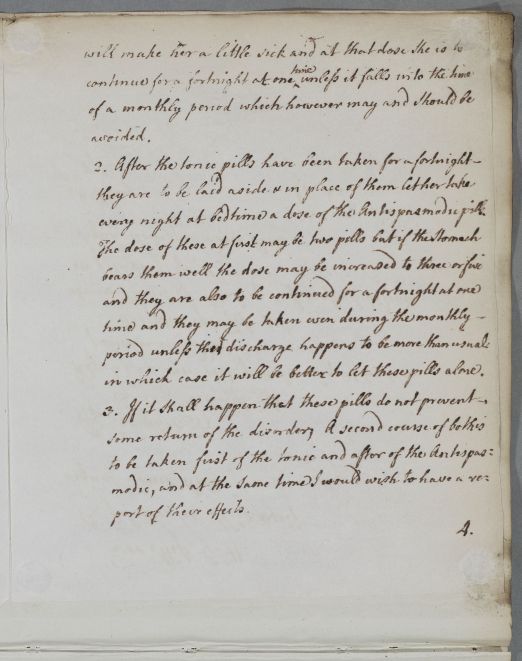 will make her a little sick and at that dose she is to
continue for a fortnight at one time unless it falls into the time
of a monthly period which however may and should be
avoided.
2. After the tonic pills have been taken for a fortnight
they are to be laid aside & in place of them let her take
every night at bedtime a dose of the Antispasmodic pills.
The dose of these at first may be two pills but if the stomach
bears them well the dose may be increased to three or five
and they are also to be continued for a fortnight at one
time and they may be taken even during the monthly
period unless the discharge happens to be more than usual
in which case it will be better to let these pills alone.
3. If it shall happen that these pills do not prevent
some return of the disorder, A second course of both is
to be taken first of the tonic and after of the Antispas=
modic, and at the same time I would wish to have a re=
port of their effects.
4.